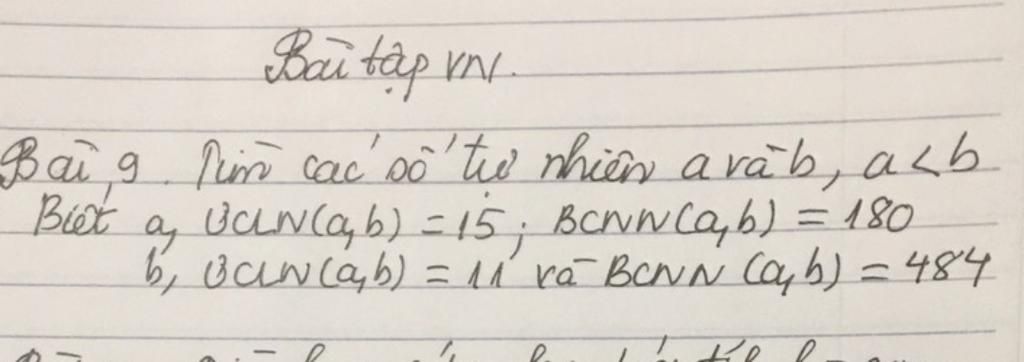 Bài tập VN.
Bài 9. Tìm các số tự nhiên a và b, a < b
Biết a, ƯCLN(a,b) = 15; BCNN(a,b) = 180
b, ƯCLN(a,b) = 11 và BCNN (a,b) = 484